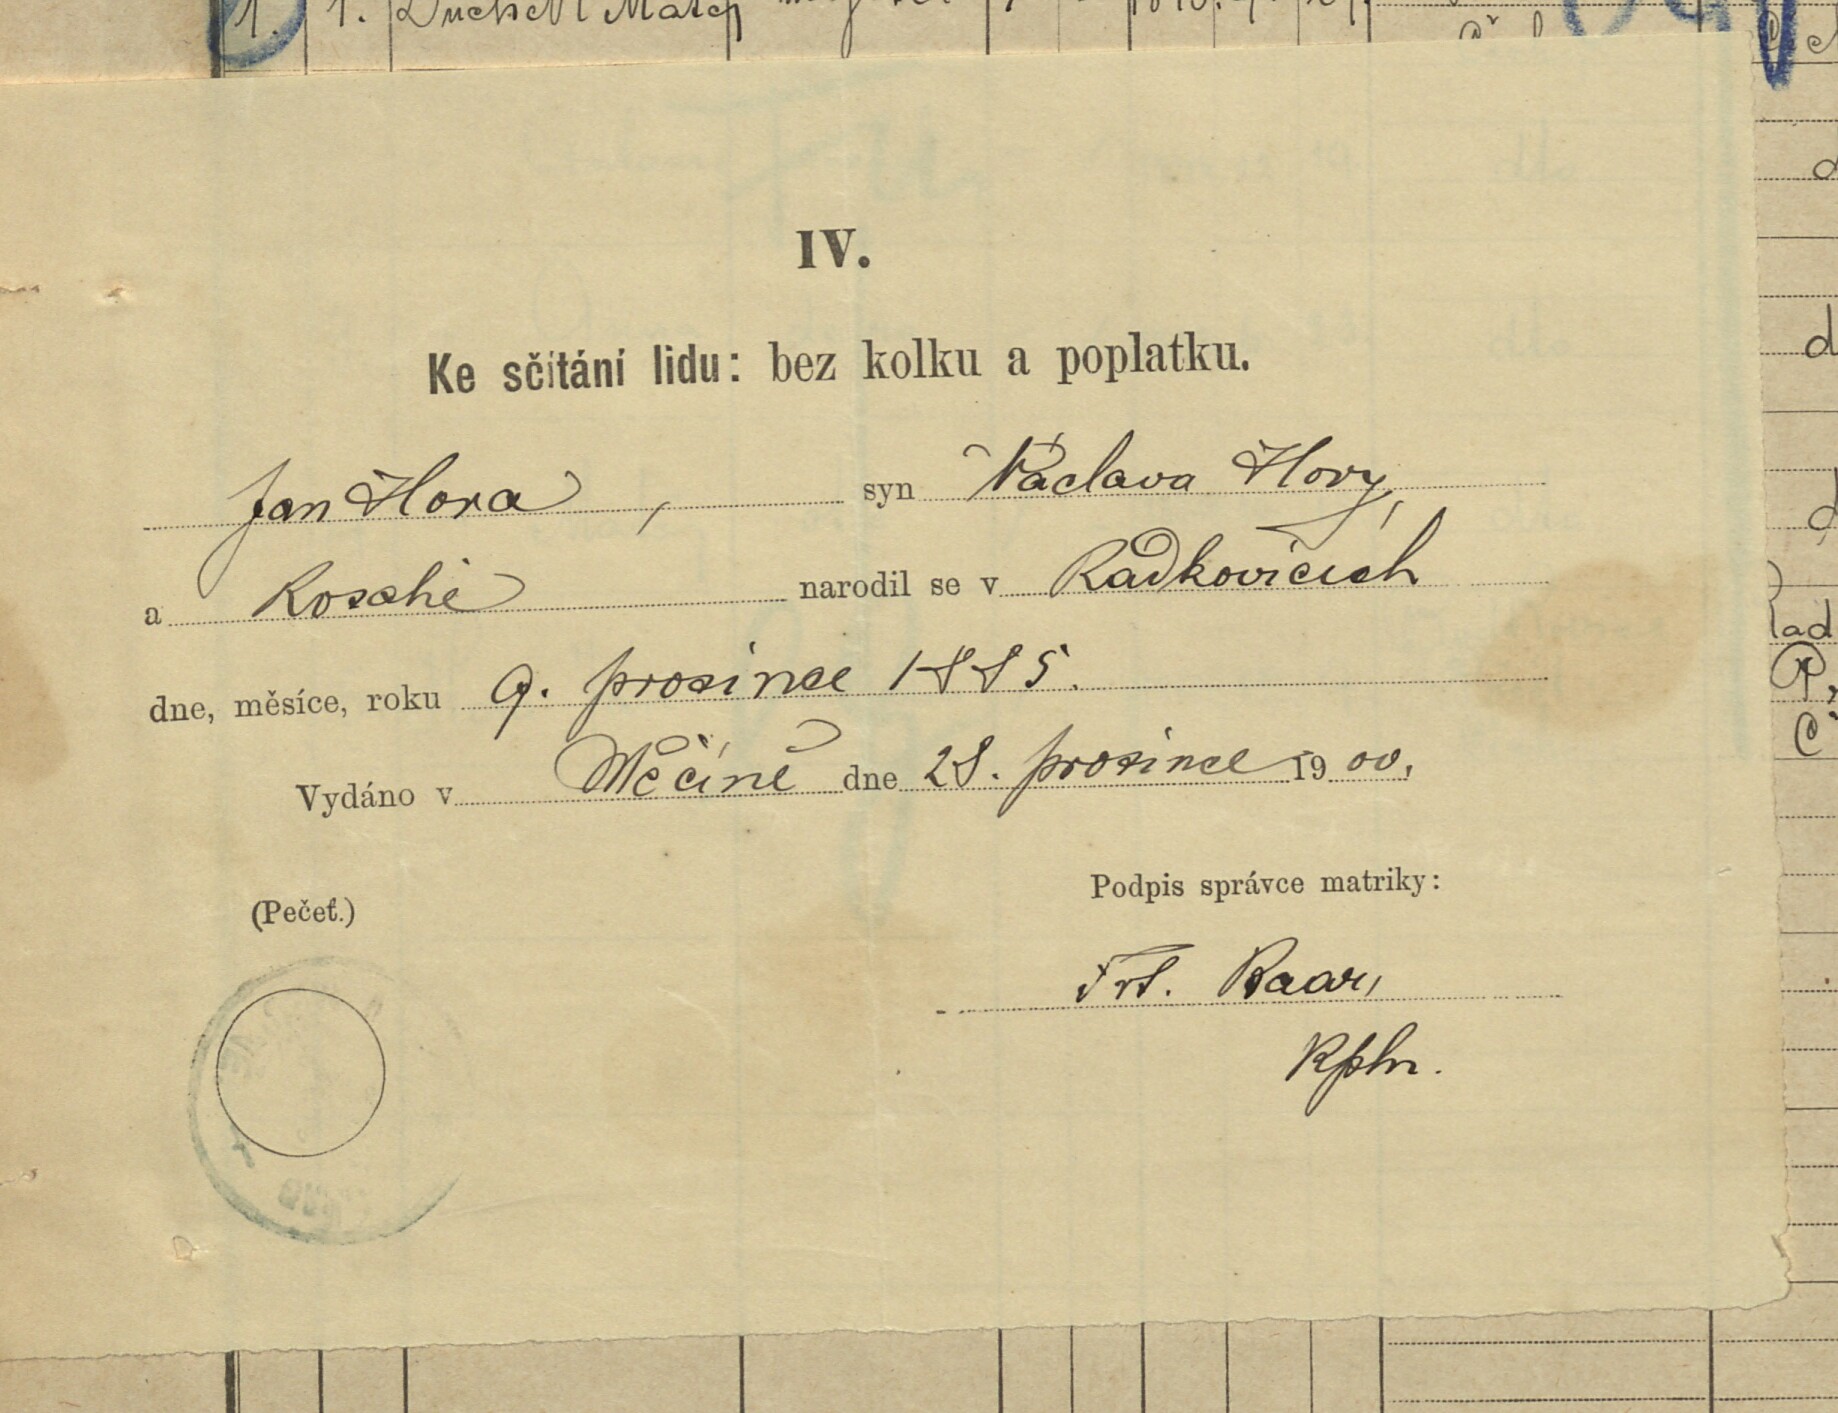 1. 1. Duchek Matěj
IV.
Ke sčítání lidu: bez kolku a poplatku.
Jan Hora, syn Václava Hory,
a Rosalie narodil se v Radkovicích
dne, měsíce, roku 9. prosince 1885.
Vydáno v Měčíně dne 28. prosince 1900.
Podpis správce matriky:
(Pečeť.)
Frt. Baar,
kpln.